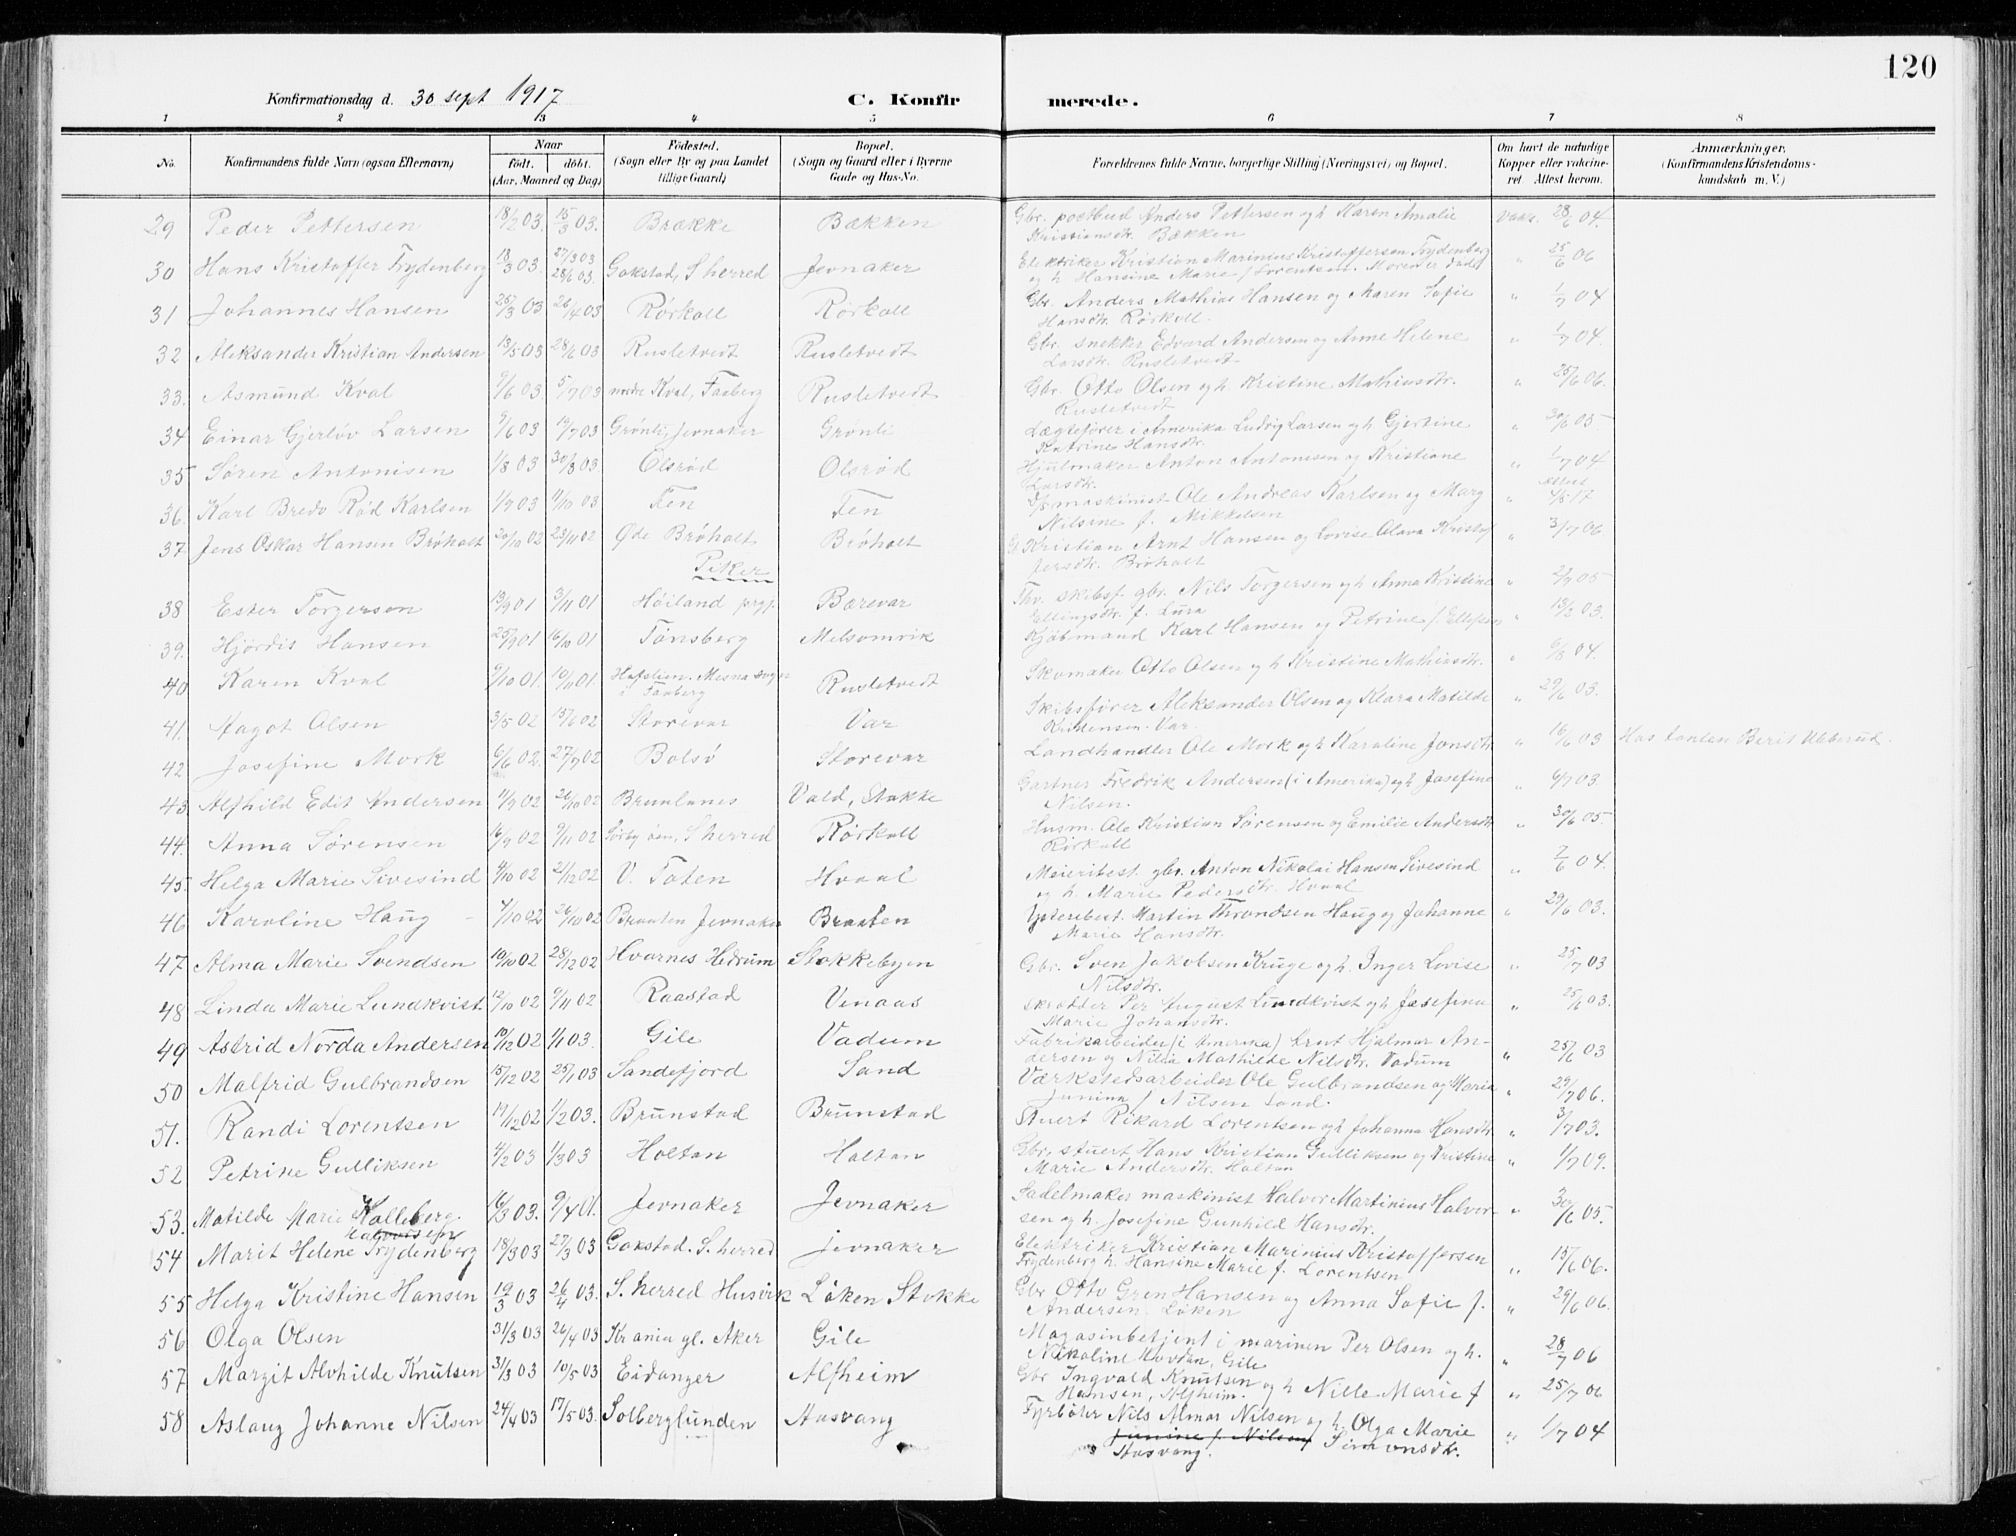 120
Konfirmationsdag d. 30 sept 1917
C. Konfirmerede.
1 2 3 4 5 6 7 8
No.
Konfirmandens fulde Navn (ogsaa Efternavn)
Naar
födt. döbt.
(Aar, Maaned og Dag)
Födested.
(Sogn eller By og paa Landet
tillige Gaard)
Bopæl.
(Sogn og Gaard eller i Byerne
Gade og Hus-No.
Forældrenes fulde Navne, borgerlige Stilling (Næringsvei) og Bopæl.
Om havt de naturlige
Kopper eller vaccine-
ret. Attest herom.
Anmærkninger.
(Konfirmandens Kristendoms-
kundskab m. V.)
29 Peder Pettersen 18/2 03. 15/3 03. Brække Bækken Gbr. postbud Anders Pettersen og h. Karen Amalie Vakc. 28/6 04.
Kristiansdr. Bækken
30 Hans Kristoffer Frydenberg 18/3 03. 27/3 03 28/6 03. Gokstad, S herred Jevnaker Elektriker Kristian Marinius Kristoffersen Frydenberg " 25/6 06
og h. Hansine Marie f. Lorentsen. Moren er død
31 Johannes Hansen 25/3 03 26/4 03 Rørkoll Rørkoll Gbr. Anders Mathias Hansen og Maren Sofie " 1/7 04
Hansdr. Rørkoll.
32 Aleksander Kristian Andersen 13/5 03 28/6 03 Rusletvedt Rusletvedt Gbr. snekker Edvard Andersen og Anne Helene " 1/7 04.
Larsdr. Rusletvedt
33. Asmund Kval 9/6 03. 5/7 03 nordre Kval, Faaberg Rusletvedt Gbr. Otto Olsen og h. Kristine Mathiasdr. " 25/6 06.
Rusletvedt
34 Einar Gjerløv Larsen 9/6 03 19/7 03 Grønli, Jevnaker Grønli Lægtefører i Amerika Ludvig Larsen og h. Gjertine " 30/6 05
Katrine Hansdr.
35 Søren Antonisen 1/8 03 30/8 03. Olsrød Olsrød Hjulmaker Anton Antonisen og Kristiane " 1/7 04
Larsdr.
36. Karl Bredo Rød Karlsen 1/9 03 11/10 03 Fen Fen Dpmaskinist Ole Andreas Karlsen og Marg " attest 4/5 17
Nilsine f. Mikkelsen
37 Jens Oskar Hansen Brøholt 20/10 02 23/11 02 Øde Brøholt Brøholt G. Kristian Arnt Hansen og Lovise Olava Kristof " 3/7 06
fersdr. Brøholt
Piker
38 Ester Torgersen 13/9 01 3/11 01 Høiland prgj. Bærevar Thv. skibsf. gbr. Nils Torgersen og h. Anna Kristine " 2/9 05
Ellingsdr. f. Lura
39. Hjørdis Hansen 25/9 01 16/10 01 Tønsberg Melsomvik Kjøbmand Karl Hansen og Petrine f. Ellefsen " 13/3 03.
40 Karen Kval 9/10 01. 10/11 01. Hafslien. Mesna sogn Rusletvedt Skomaker Otto Olsen og h Kristine Mathiasdr. " 6/8 04.
i Faaberg
41. Aagot Olsen 3/5 02 15/6 02 Storevar Var Skibsfører Aleksander Olsen og Klara Matilde " 29/6 03.
Kristensen. Var.
42 Josefine Mork 6/6 02. 27/7 02 Bolsø Storevar Landhandler Ole Mork og h Karoline Jonsdr. " 16/6 03 Hos tanten Berit Ubberud.
43. Alfhild Edit Andersen 11/9 02 26/10 02 Brunlanes Vald, Stokke Gartner Fredrik Andersen (i Amerika) og h Josefine " 6/7 03.
Nilsen.
44. Anna Sørensen 16/9 02 9/11 02 Sørby øen, S herred Rørkoll Husm. Ole Kristian Sørensen og Emilie Andersdr " 30/6 05.
Rørkoll
45. Helga Marie Sivesind 4/10 02 21/12 02 V. Toten Hvaal Meieribest. gbr. Anton Nikolai Hansen Sivesind " 7/6 04.
og h. Marie Pedersdr. Hvaal
46 Karoline Haug 7/10 02 26/10 02 Braaten Jevnaker Braaten Martin Throndsen Haug og Johanne " 29/6 03.
Marie Hansdr.
47 Alma Marie Svendsen 10/10 02 28/12 02 Hvarnes Hedrum Stokkebyen Gbr. Sven Jakobsen Kruge og h. Inger Lovise " 25/7 03
Nilsdr.
48 Linda Marie Lundkvist. 12/10 02 9/11 02 Raastad Venaas Skrædder Per August Lundkvist og h Josefina " 25/6 03.
Marie Johansdr.
49 Astrid Norda Andersen 10/12 02 1/1 03. Gile Vadum Fabrikarbeider (i Amerika) Knut Hjalmar An- " 25/6 03
dersen og Nilia Mathilde Nilsdr. Vadum
50 Malfrid Gulbrandsen 15/12 02 25/1 03 Sandefjord Sand Værkstedsarbeider Ole Gulbrandsen og Maria " 29/7 06.
Junina f. Nilsen Sand.
51. Randi Lorentsen 17/12 02 1/2 03. Brunstad Brunstad Stuert Rikard Lorentsen og h Johanna Hansdr " 3/7 03.
52 Petrine Gulliksen 4/2 03 1/3 03 Holtan Holtan Gbr. stuert Hans Kristian Gulliksen og Kristine " 1/7 09.
Marie Andersdr. Holtan
53. Matilde Marie Kolleberg. 16/3 03. 9/4 01. Jevnaker Jevnaker Sadelmaker maskinist Halvor Martinius Halvor- " 30/6 05.
Halvorsen
sen og h. Josefine Gunhild Hansdr.
54 Marit Helene Frydenberg 18/3 03 27/3 03 Gokstad. S. herred jevnaker Elektriker Kristian Marinius Kristoffersen " 15/6 06.
Frydenberg h. Hansine Marie f. Lorentsen
55 Helga Kristine Hansen 19/3 03 26/4 03. S. herred Husvik Løken Stokke Gbr Otto Gren Hansen og Anna Sofie f. " 29/6 06.
Andersen. Løken
56 Olga Olsen 31/3 03 26/4 03 Krania gl. Aker Gile Magasinbetjent i marinen Per Olsen og h. " 28/7 06
Nikoline Movdan, Gile
57 Margit Alvhilde Knutsen 31/3 03 10/5 03 Eidanger Alfheim Gbr Ingvald Knutsen og h Nille Marie f " 25/7 06
Hansen, Alfheim.
58 Aslaug Johanne Nilsen 24/4 03 17/5 03. Solberglunden Aasvang Fyrbøter Nils Almar Nilsen og h. Olga Marie " 1/7 04
Junine f. Nilsen Simonsdr.
Aasvang.